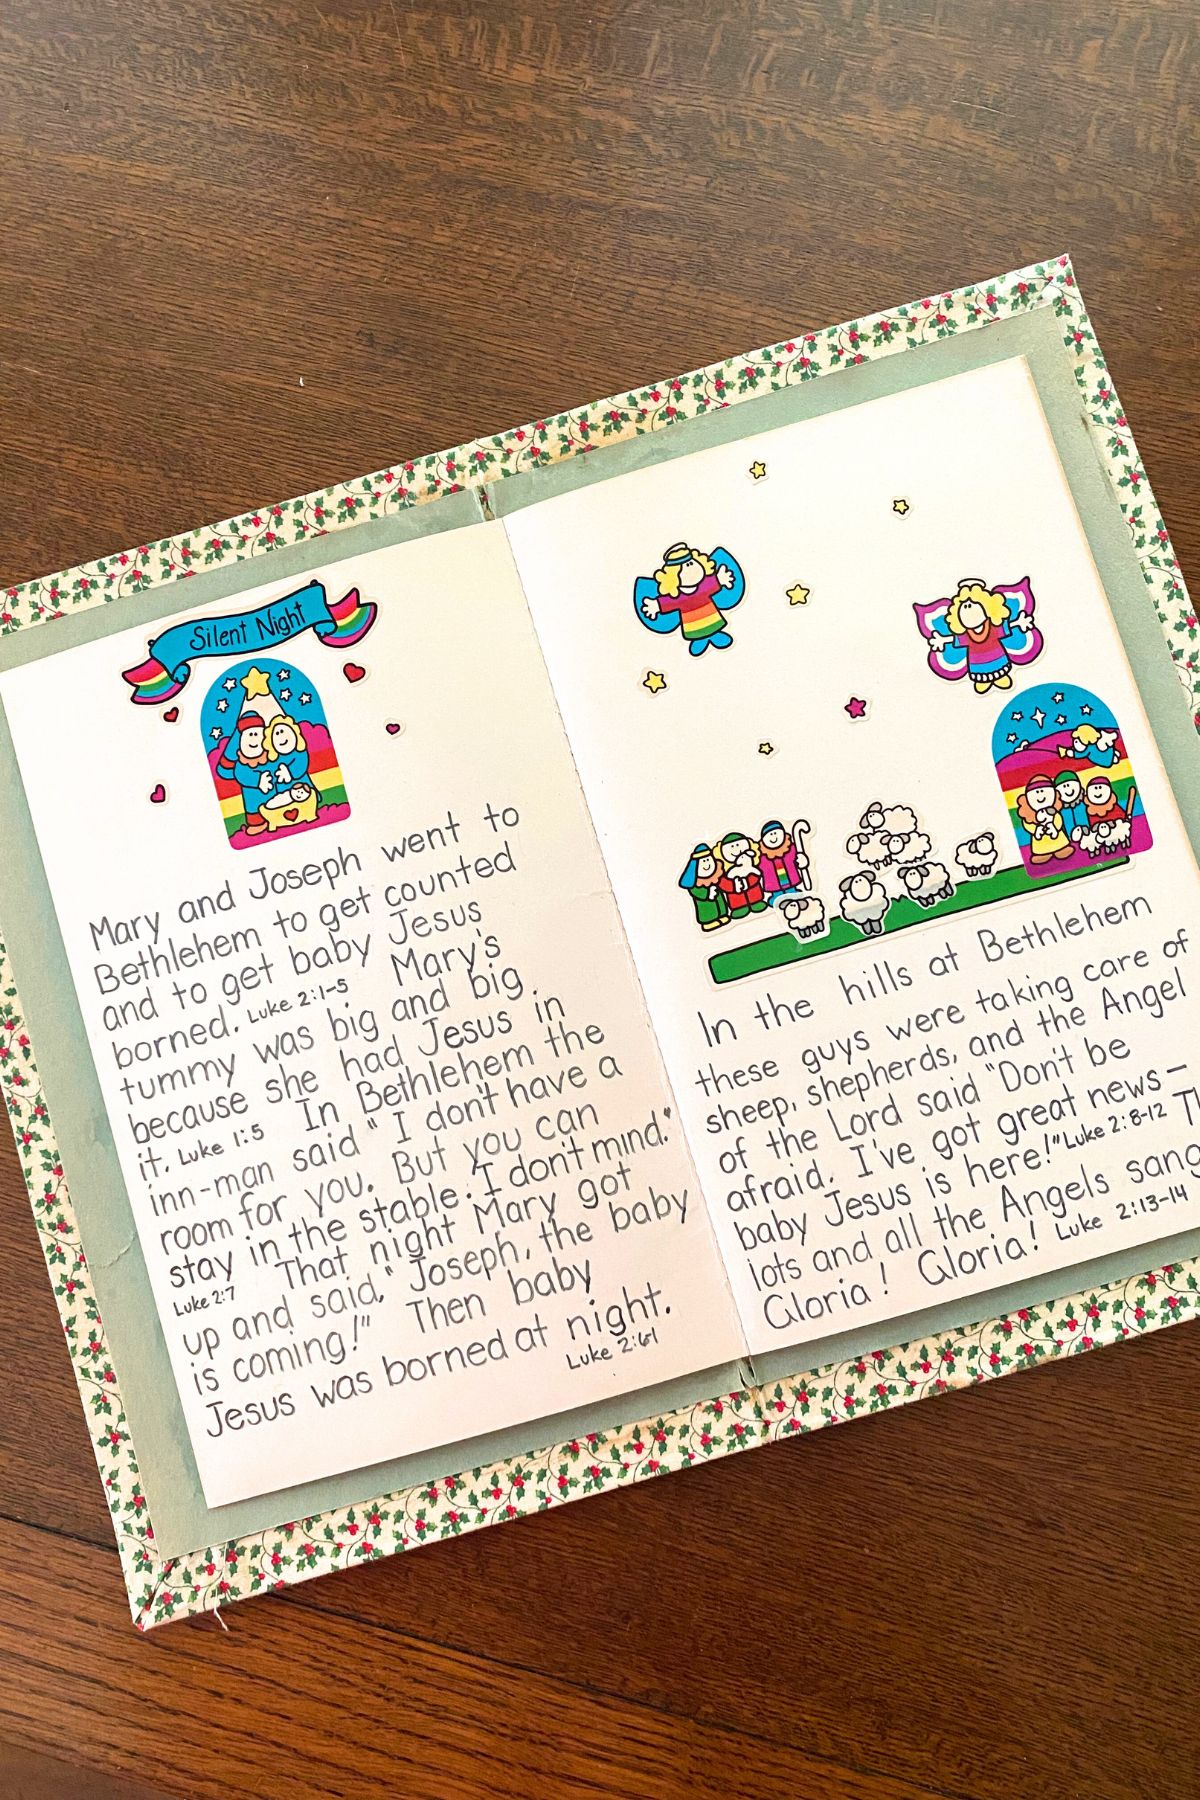 Silent Night
Mary and Joseph went to
Bethlehem to get counted
and to get baby Jesus
borned. Luke 2:1-5 Mary's
tummy was big and big
because she had Jesus in
it. Luke 1:5 In Bethlehem the
inn-man said "I don't have a
room for you. But you can
stay in the stable. I don't mind."
Luke 2:7 That night Mary got
up and said, "Joseph, the baby
is coming!" Then baby
Jesus was borned at night.
Luke 2:6-1
In the hills at Bethlehem
these guys were taking care of
sheep, shepherds, and the Angel
of the Lord said "Don't be
afraid. I've got great news—
baby Jesus is here!" Luke 2:8-12
lots and all the Angels sang
Gloria! Gloria! Luke 2:13-14